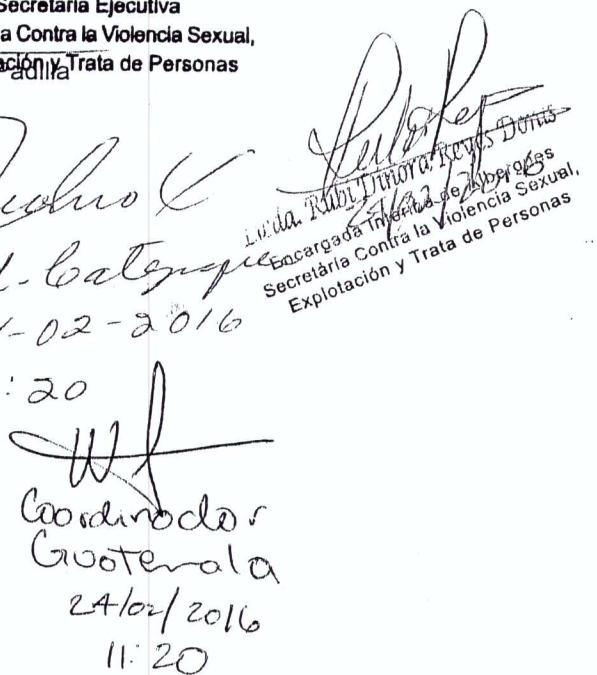 Secretaria Ejecutiva
a Contra la Violencia Sexual,
ación y Trata de Personas
adilla
Licda. Rubi Dinora Reyes Donis
Encargada Interina de Albergues
Secretaría Contra la Violencia Sexual,
Explotación y Trata de Personas
-02-2016
:20
Coordinador
Guatemala
24/02/2016
11:20